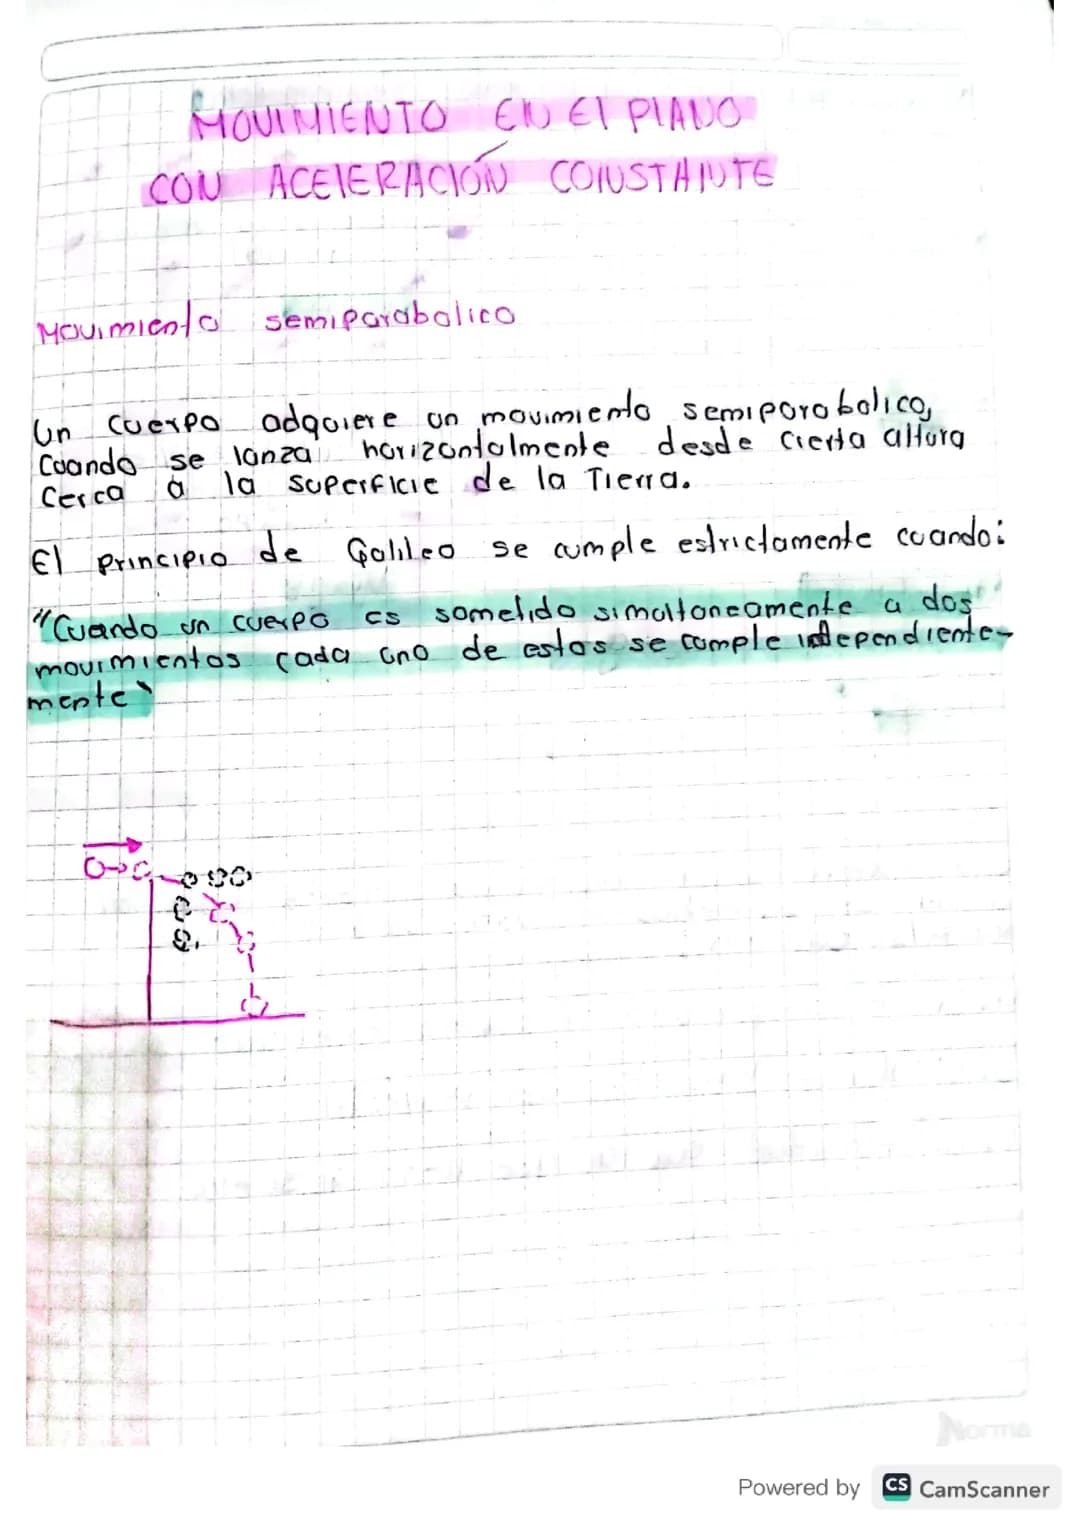 MOVIMIENTO EN El PlANO
CON ACElERACIÓN CONSTANTE
Movimiento semiparabolico
Un cuerpo adquiere un movimiento semiparabolico,
Cuando se lanza horizontalmente desde cierta altura
Cerca a la superficie de la Tierra.
El principio de Galileo se cumple estrictamente cuando:
"Cuando un cuerpo es sometido simultaneamente a dos
movimientos cada uno de estos se cumple independiente-
mente"
Norma
Powered by CS CamScanner